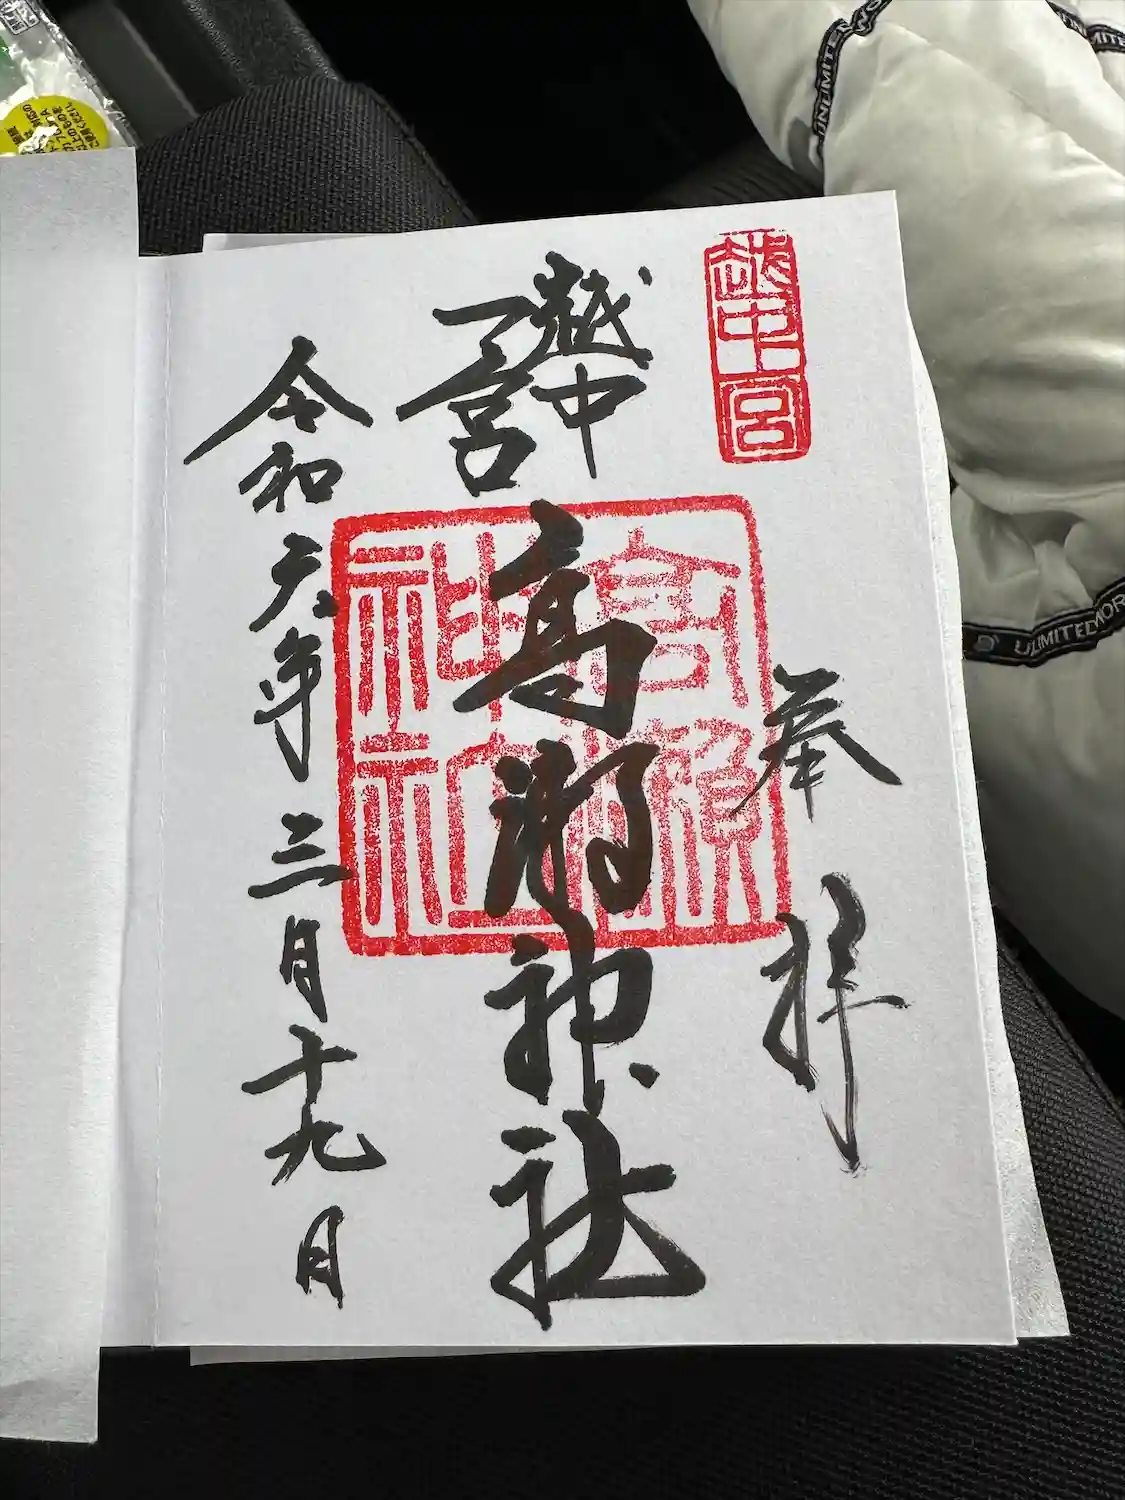 奉拝
越中
一宮
高瀬神社
令和六年三月十九日
越中一宮
高瀬神社
UNLIMITED
UNLIMITED WOR